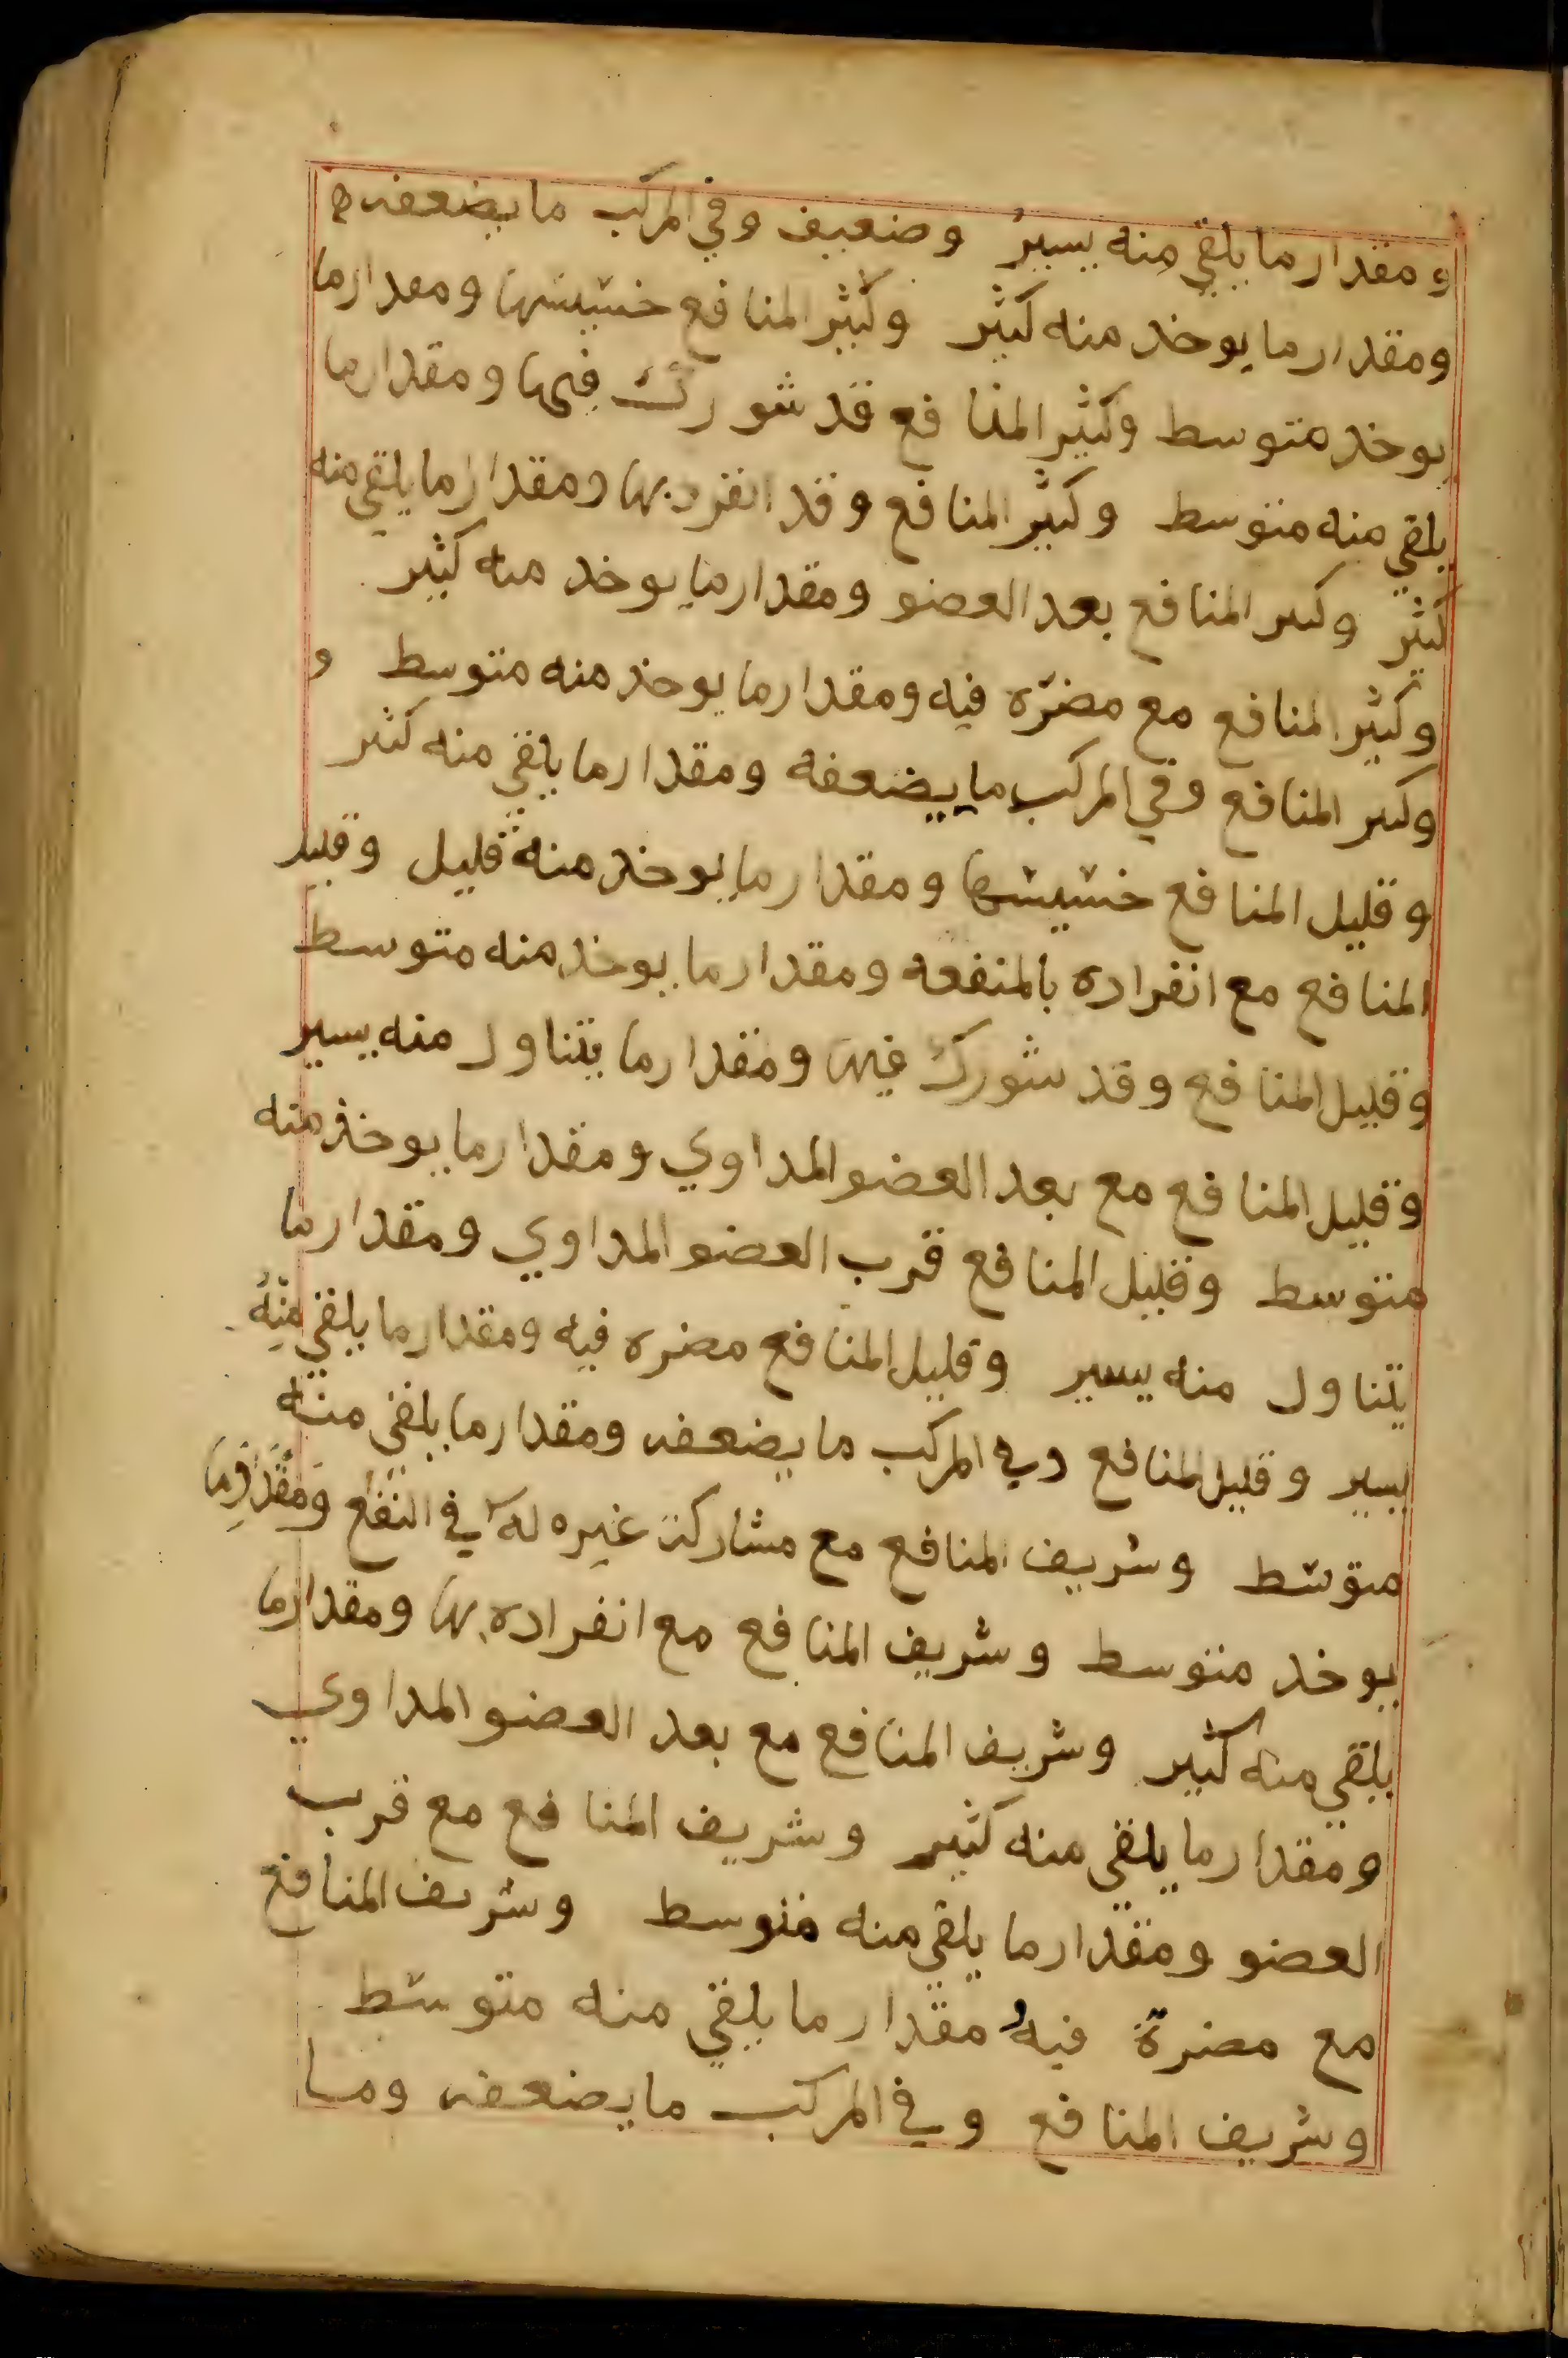 ومقدار ما يلقي منه يسيرُ وضعيف وفي المركب ما يضعفه ه
ومقدار ما يوخد منه كثير وكثير المنافع خسيسها ومقدار ما
يوخد متوسط وكثير المنا فع قد شورك فيها ومقدار ما
يلقي منه متوسط وكثير المنافع وقد انفرد بها ومقدار ما يلقي منه
كثير وكىر المنافع بعد العضو ومقدار ما يوخد منه كثير
وكثير المنافع مع مضرّه فيه ومقدار ما يوخد منه متوسط و
وكىر المنافع وفي المركب ما يضعفه ومقدار ما يلقي منه كثىر
وقليل المنافع خسيسها ومقدار ما يوخد منه قليل وقليل
المنافع مع انفراده بالمنفعه ومقدار ما يوخد منه متوسط
وقليل المنافع وقد شورك فيها ومقدار ما يتناول منه يسير
وقليل المنافع مع بعد العضو المداوي ومقدار ما يوخذ منه
متوسط وقليل المنافع قرب العضو المداوي ومقدار ما
يتناول منه يسير وقليل المنافع مضره فيه ومقدار ما يلقي مِنْهُ
يسير وقليل المنافع وفي المركب ما يضعفه ومقدار ما يلقي منه
متوسّط وشريف المنافع مع مشاركة غيره له في النفع ومقدار ما
يوخد متوسط وشريف المنافع مع انفراده بها ومقدار ما
يلقي منه كثير وشريف المنافع مع بعد العضو المداوي
ومقدار ما يلقي منه كثير وشريف المنا فع مع قرب
العضو ومقدار ما يلقي منه متوسط وشريف المنافع
مع مضرة فيه مقدار ما يلقي منه متوسّط
وشريف المنافع وفي المركب ما يضعفه وما